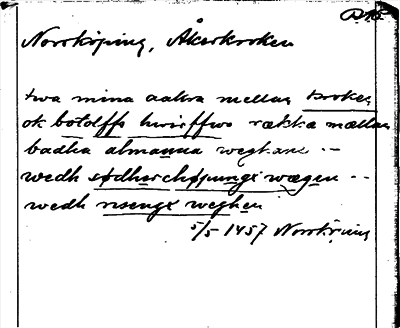 Norrköping, Åkerkroken
twa mina aakra mellan kroken
ok botolffs hwirffwo rækka mællan
badha almanna weghane --
wedh sødherchøpungx wægen --
wedh risengx weghen
5/5 1457 Norrköping